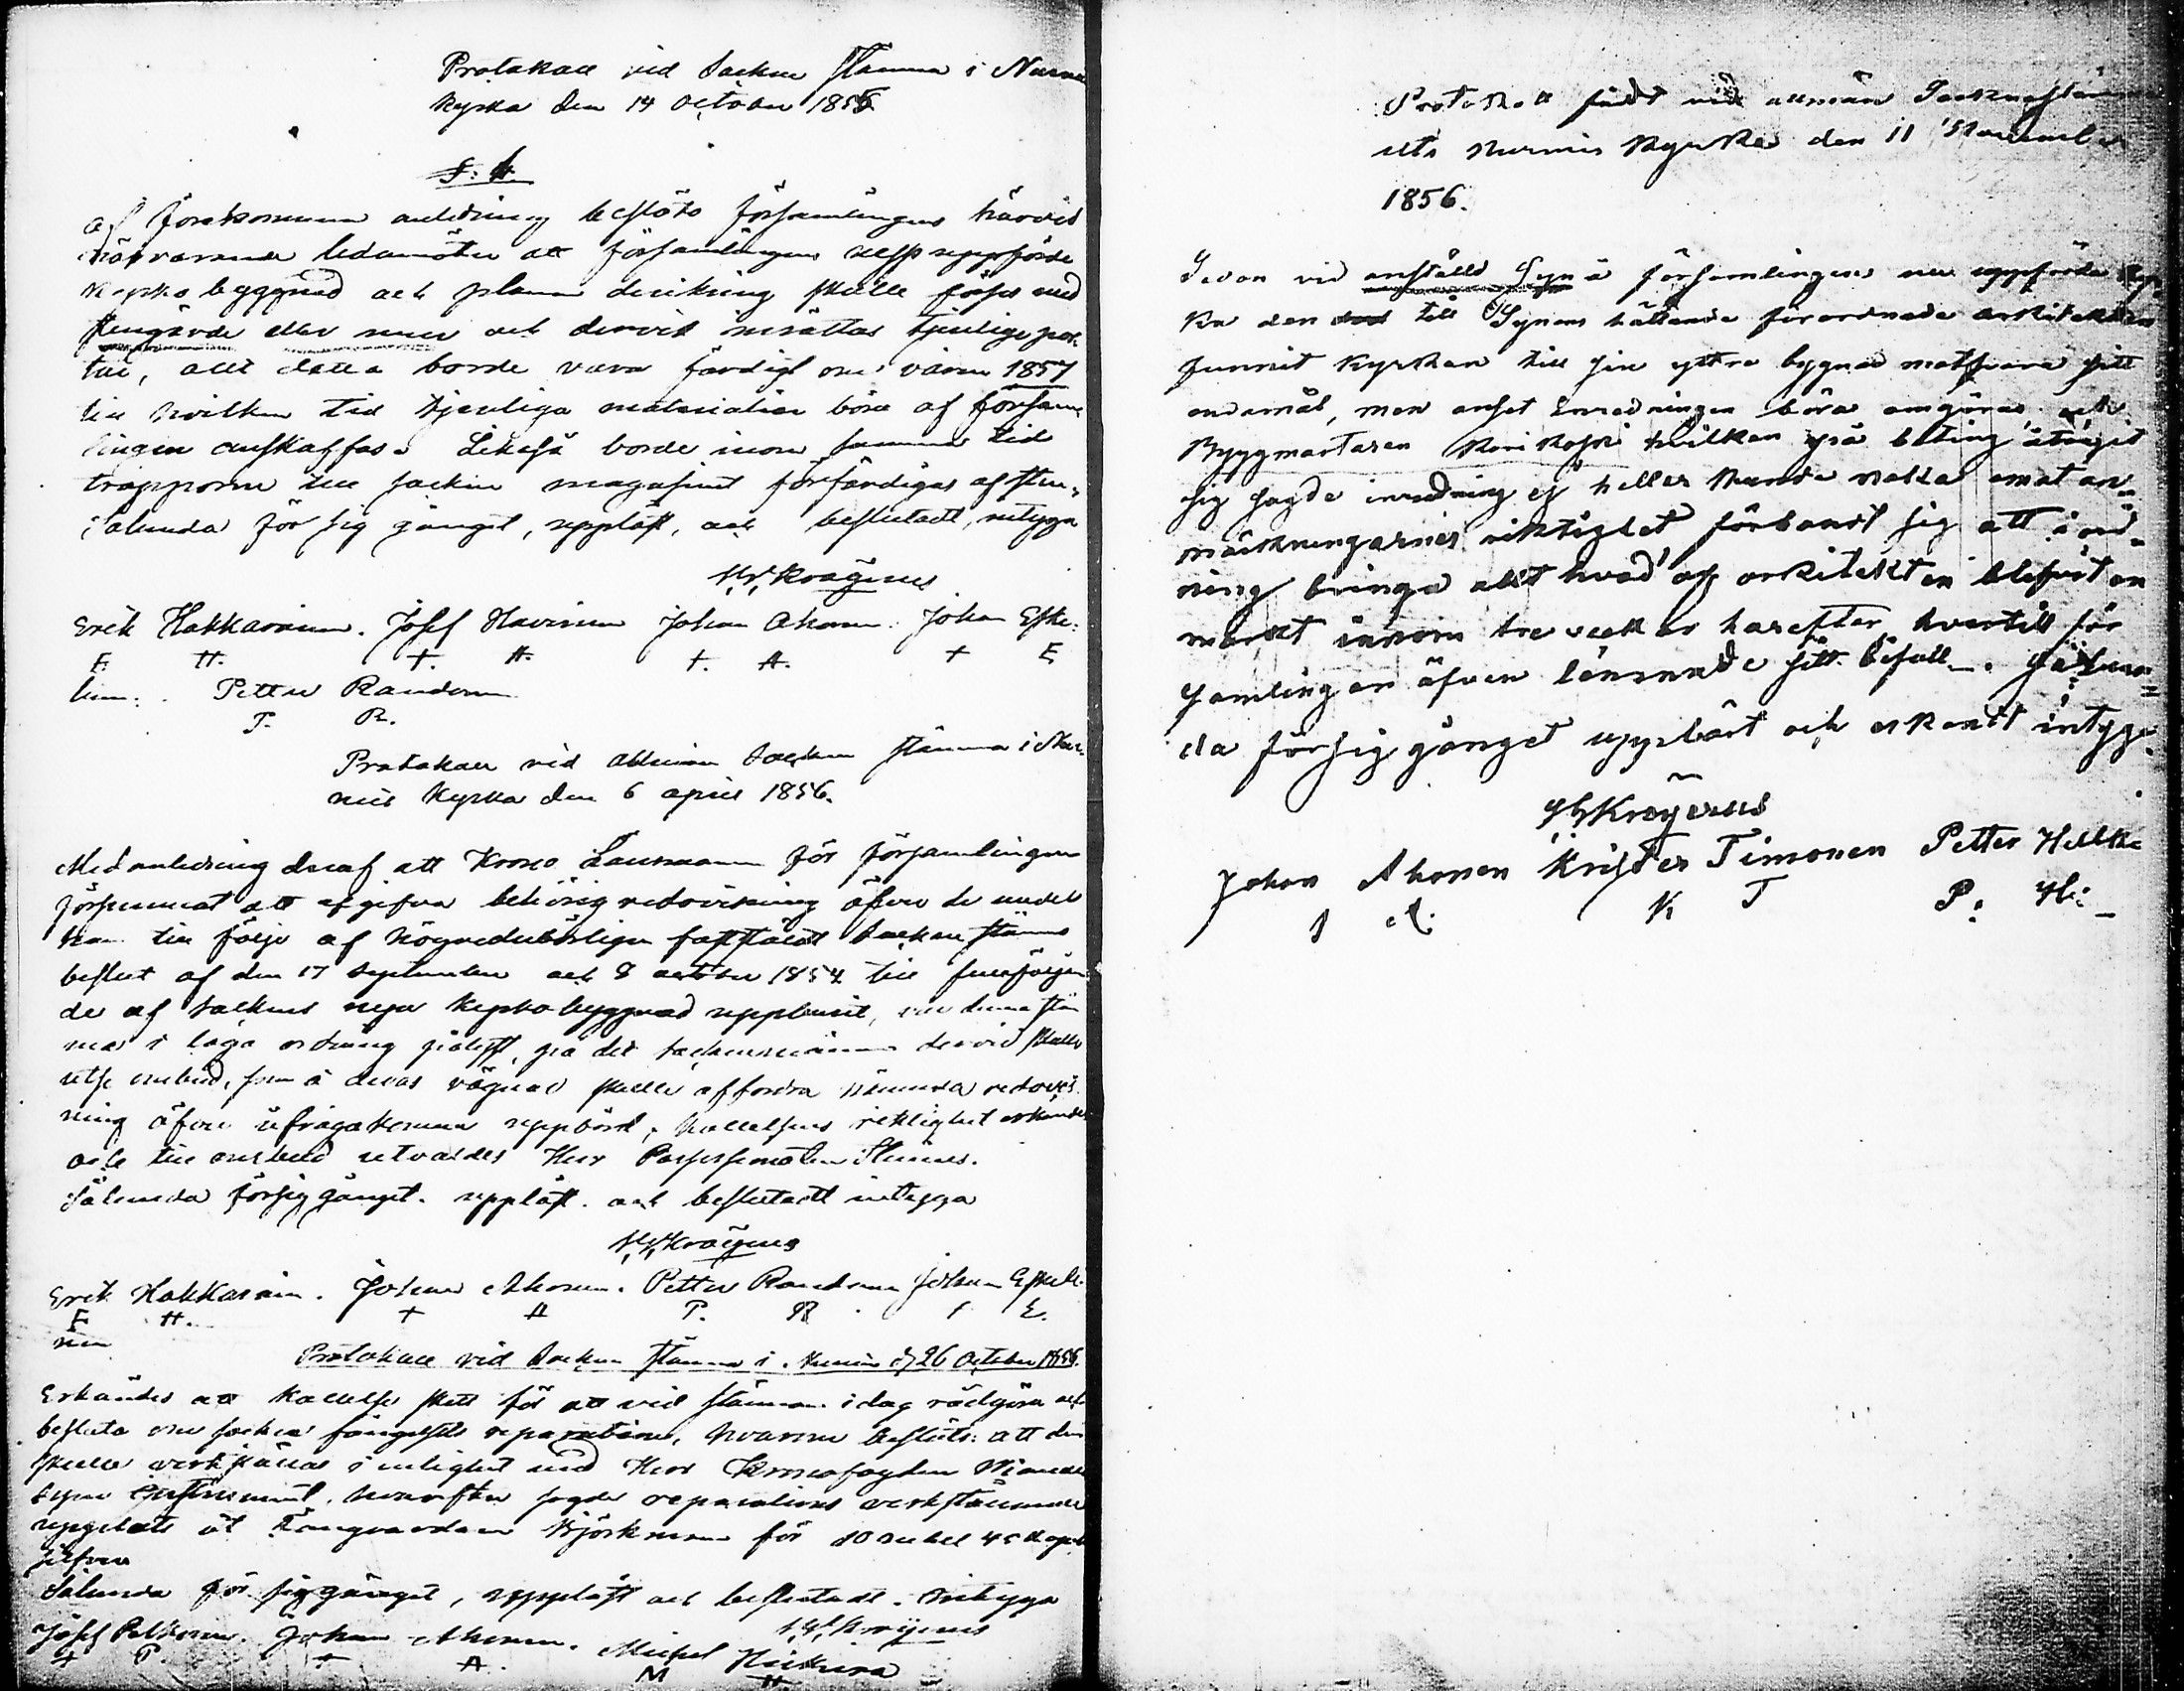 Protokoll vid Socken stämma i Nurmis
Kyrka den 14 October 1855
§: 1.
Af förekommen anledning beslöts församlingens härvid
närvarande ledamöter att församlingens uppförde
kyrko byggnad och skulle förses med
stengärde eller mur och dervid insättas tjenlige por-
tar, allt detta borde vara färdigt om våren 1857
till hvilken tid tjenliga materialier böra af försame
lingen anskaffas. Likaså borde inom samma tid
trapporne till socken magasinet förfärdigas af sten,
Sålunda för sig gånget, uppläst, och beslutadt, intyga
Kröyerus
Erik Hakkarainen. Josef Havirinen Johan Ahonen. Johan Eske-
E. H. J. H. J. A. J E
linen. Petter Raudonen
P. R.
Protokoll vid allmän Socken stämma i Nur-
mis Kyrka den 6 april 1856.
Med anledning deraf att Krono Länsmannen för församlingen
försummat att afgifva behörig redovisning öfver de medel
han till följe af högvederbörligen fastställdt Socken stämmo
beslut af den 17 September och 8 october 1854 till
de af sockens nya kyrkobyggnad uppburit, var denna stäm
ma i laga ordning pålyst, på det sockenmännen dervid skulle
utse ombud, som å deras vägnar skulle affordra nämnda redovis
ning öfver ifrågakomna uppbörd, kallelsens riktighet erkändes
och till ombud utvaldes Herr
Sålunda försiggånget. uppläst. och beslutadt intyga
Kröyerus
Erik Hakkarainen. Johan Ahonen. Petter Raudonen Johan Eskeli-
E H. J A P. R J E.
nen
Protokoll vid Socken stämma i Nurmis d 26 October 1856.
Erkändes att kallelse skett för att vid stämman idag rådgöra och
besluta om socken fängelsets reparation, hvarom beslöts: att den
skulle verkställas i enlighet med Herr Kronofogden
syne instrument, hvarefter sagde reparations verkställande
uppläts åt Fångvaktaren Björkman för 10 rubel 45 kopek
silfver
Sålunda för sig gånget, uppläst och beslutadt. Intyga
Kröyerus
Josef Pelkonen. Johan Ahonen. Michel Heiskinen
J P. J A. M H
Protokoll fördt vid allmän Sockenstämma
uti Nurmis Kyrka den 11 November
1856.
Sedan vid anställd Syn å församlingens nu uppförda Kyr
ka den till Synens hållande förordnade arkitekten
funnit Kyrkan till sin yttre bygnad motsvara sitt
endamål, men ansett inredningen böra omgöras, och
Byggmästaren hvilken på beting åtagit
sig sagde inredning ej heller kunde neka emot an-
märkningarnes riktighet förbandt sig att i ord-
ning bringa allt hvad af arkitekten blifvit an
märkt innom tre veckor harefter hvartill för
samlingen äfven lemnade sitt bifall. Så lun-
da försig gånget upplast och erkandt intyga.
Kröyerus
Johan Ahonen Krister Timonen Petter Hilke
J A. K T P. H: